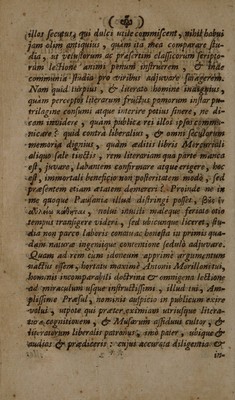 illas secutus, qui dulci utile commiscent, nihil habui
jam olim antiquius, quàm ita mea comparare stu-
dia, ut vetustorum ac præsertim classicorum scripto-
rum lectione animi penum instruerem, & inde
communia studia pro viribus adjuvare satagerem.
Nam quid turpius, & literato homine indignius,
quàm perceptos literarum fructus pomorum instar pu-
trilagine consumi atque interire potius sinere, ne di-
cam invidere, quam publicæ rei illos in usus commu-
nicare? quid contrà liberalius, & omni seculorum
memoria dignius, quàm æditis libris Mercuriali
aliquo sale tinctis, rem literariam qua parte manca
est, juvare, labantem confirmare atque erigere, hoc
est, immortali beneficio non posteritatem modò, sed
præsentem etiam ætatem demereri? Proinde ne in
me quoque Pausaniæ illud distringi posset,
nolui inutili malorum feriato otio
tempus transigere videri, sed ubicunque liceret, stu-
dia non parco laboris conatu ac honesta in primis qua-
dam natura ingenique contentione sedulò adjuvare.
Quam ad rem cùm idoneum apprimè argumentum
nactus essem, hortatu maximè Antonii Morillonitui,
hominis incomparabili doctrina & omnigena lectione
ad miraculum usque instructissimi, illud tui, Am-
plissime Præsul, nominis auspicio in publicum exire
volui, utpote qui præter eximiam utriusque litera-
turæ cognitionem, & Musarum assiduus cultor, &
literatorum liberalis patronus, imò pater, ubique &
audias & prædiceris: cujus accurata diligentia &
in-